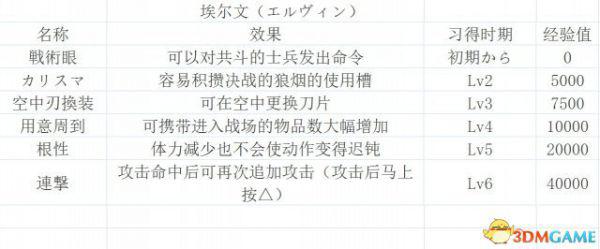 埃尔文（エルヴィン）
名称 效果 习得时期 经验值
戦術眼 可以对共斗的士兵发出命令 初期から 0
カリスマ 容易积攒决战的狼烟的使用槽 Lv2 5000
空中刃換装 可在空中更换刀片 Lv3 7500
用意周到 可携带进入战场的物品数大幅增加 Lv4 10000
根性 体力减少也不会使动作变得迟钝 Lv5 20000
連撃 攻击命中后可再次追加攻击（攻击后马上按△） Lv6 40000
3DMGAME